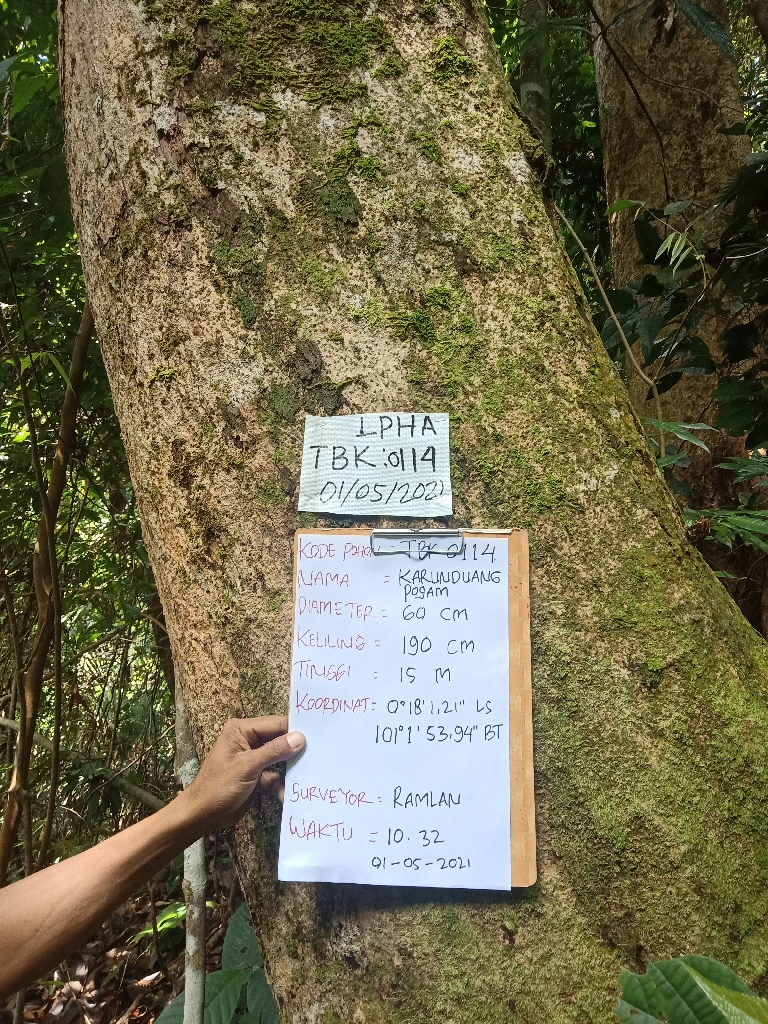 LPHA
TBK:0114
01/05/2021
KODE POHON = TBK 0114
NAMA = KARUNDUANG
Pogam
DIAMETER = 60 CM
KELILING = 190 CM
TINGGI = 15 M
KOORDINAT = 0°18'1,21" LS
101°1'53,94" BT
SURVEYOR = RAMLAN
WAKTU = 10.32
01-05-2021